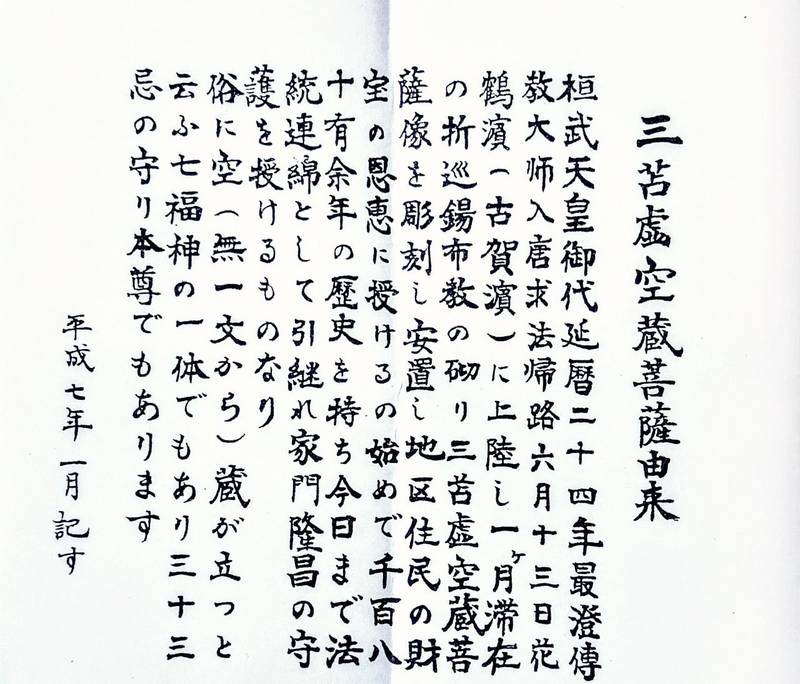 三苫虚空蔵菩薩由来
桓武天皇御代延暦二十四年最澄傳
教大师入唐求法帰路六月十三日花
鶴濱(古賀濱)に上陸し一ヶ月滞在
の折巡錫布教の砌リ三苫虚空蔵菩
薩像を彫刻し安置し地区住民の財
宝の恩恵に授けるの始めで千百八
十有余年の歴史を持ち今日まで法
統連綿として引継れ家門隆昌の守
護を授けるものなり
俗に空(無一文から)蔵が立つと
云ふ七福神の一体でもあり三十三
忌の守リ本尊でもあります
平成七年一月記す